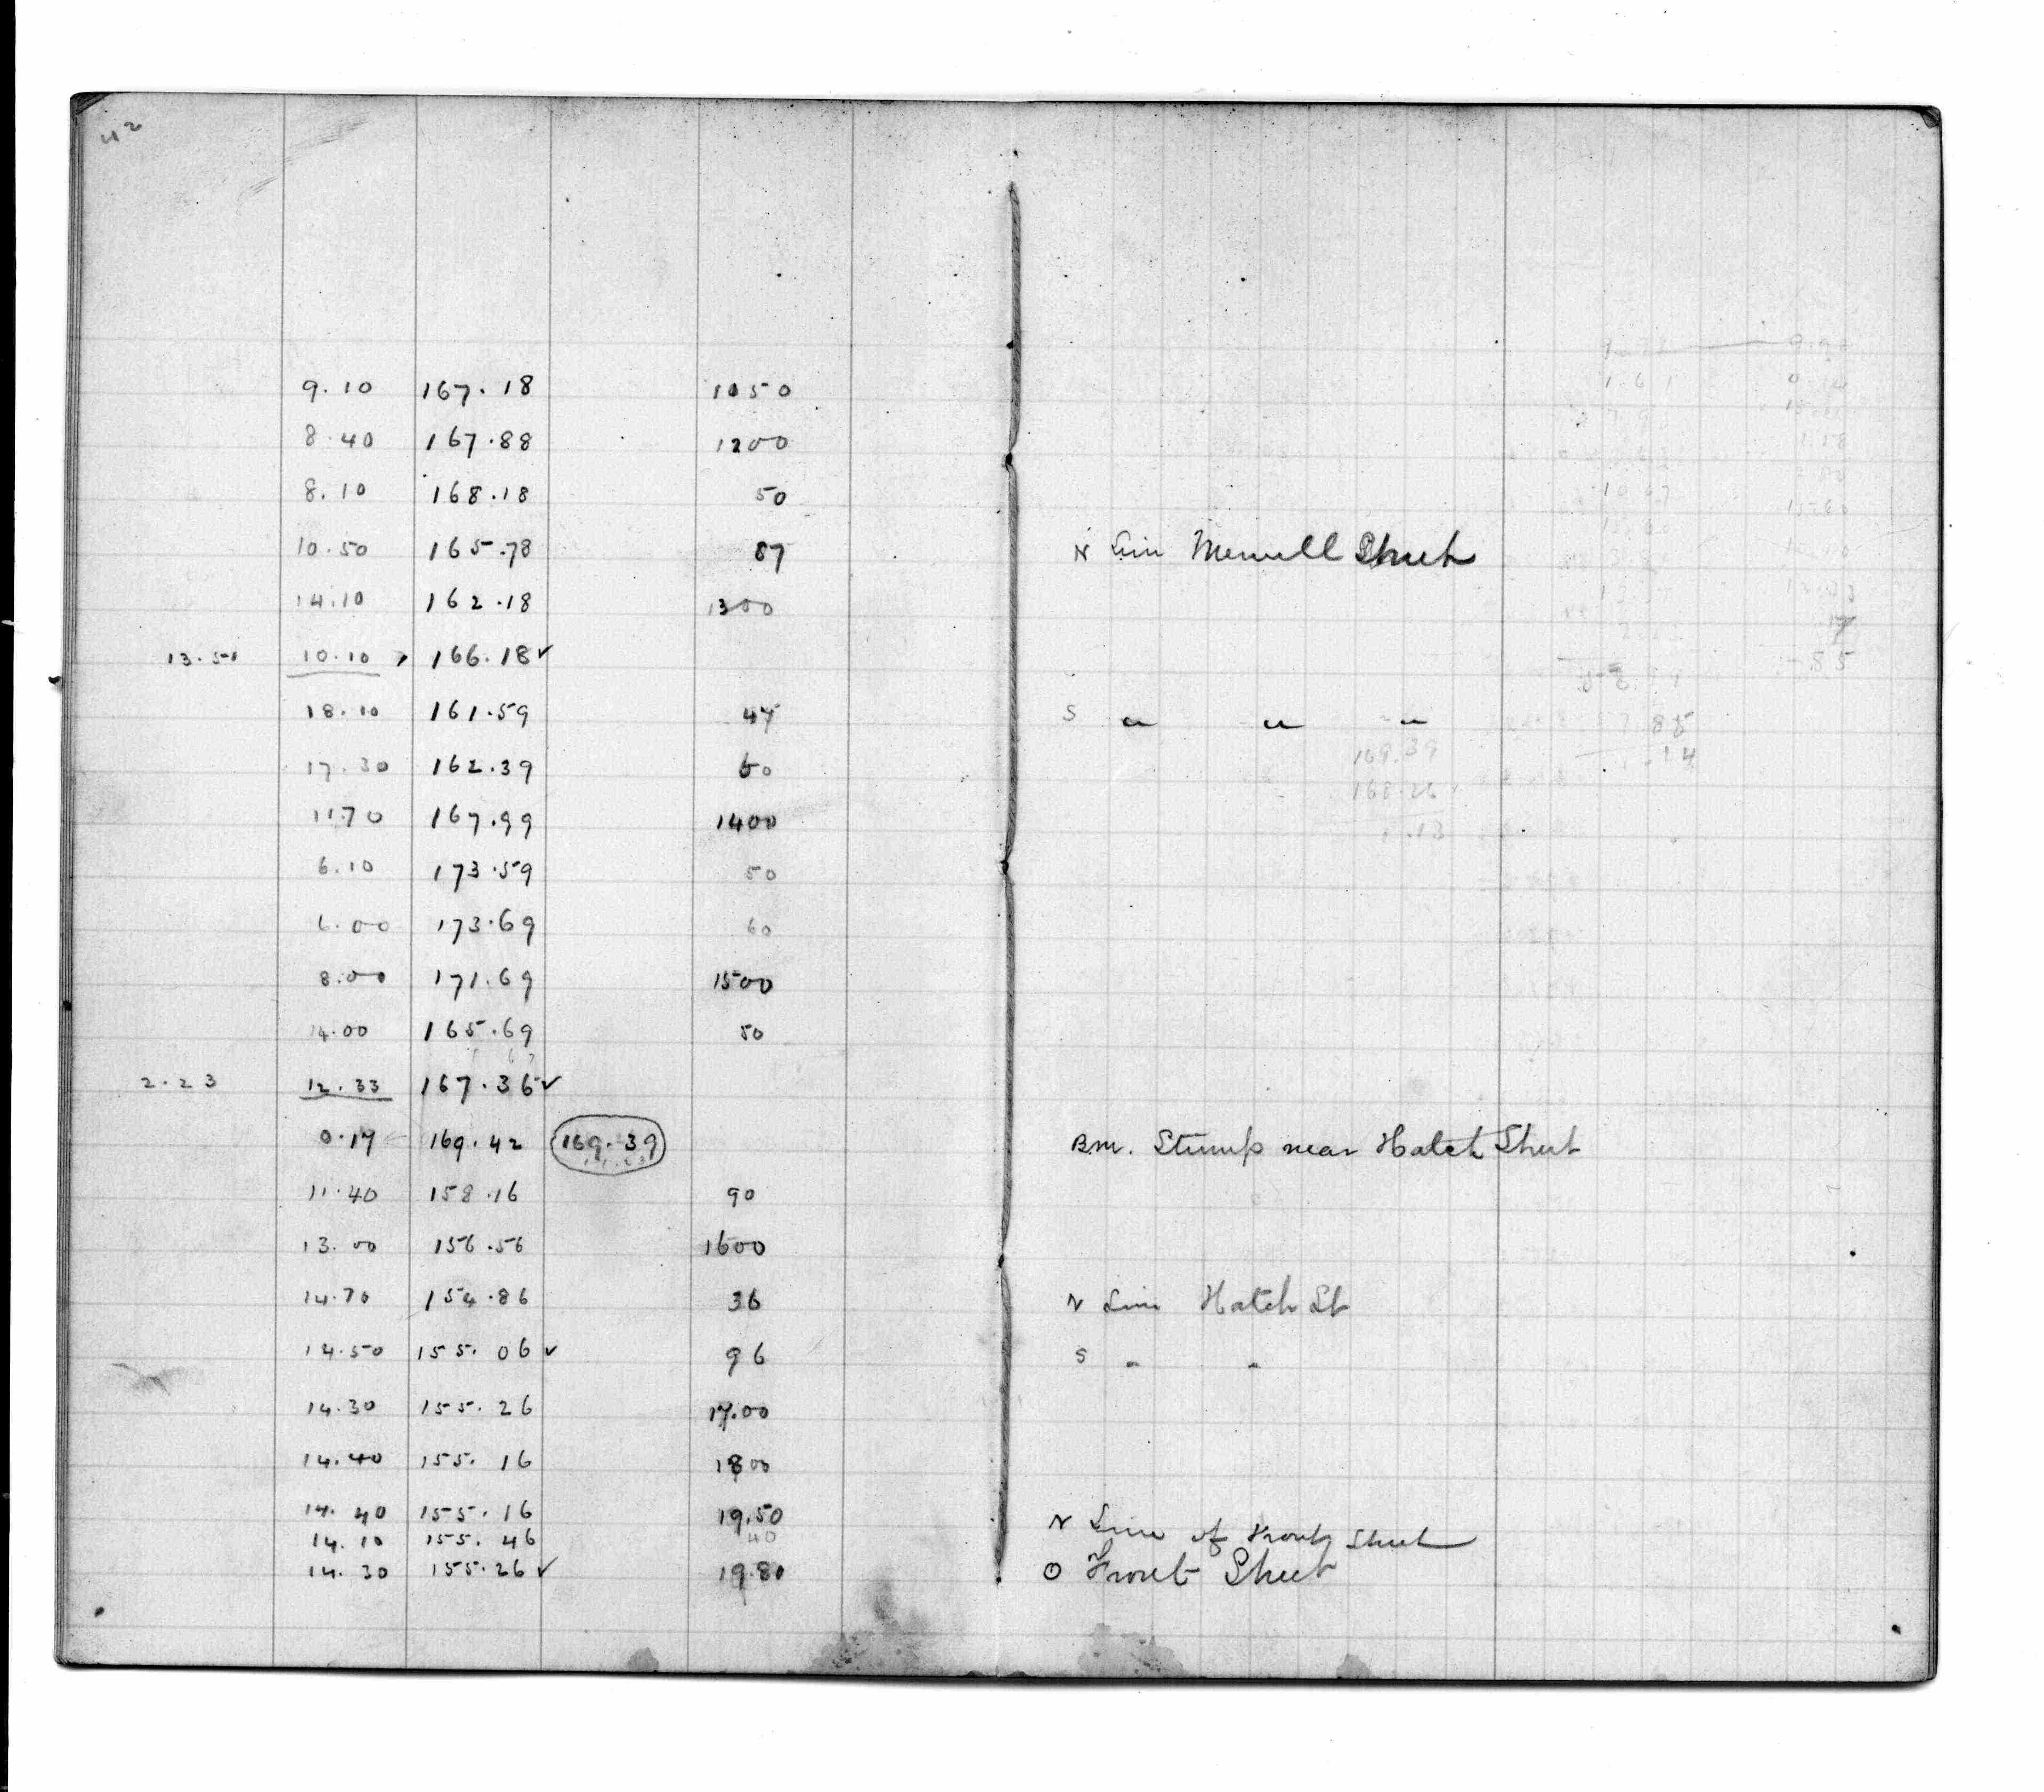 42
9.10 167.18 1050
8.40 167.88 1200
8.10 168.18 50
10.50 165.78 87 N Line Merrill Street
14.10 162.18 1300
13.51 10.10 166.18 ✓
18.10 161.59 47 S " " "
17.30 162.39 60
169.39
11.70 167.99 1400
1.13
6.10 173.59 50
6.00 173.69 60
8.00 171.69 1500
14.00 165.69 50
2.23 12.33 167.36 ✓
0.17 169.42 169.39 B.M. Stump near Hatch Street
11.40 158.16 90
13.00 156.56 1600
14.70 154.86 36 N Line Hatch St
14.50 155.06 ✓ 96 S " "
14.30 155.26 17.00
14.40 155.16 1800
14.40 155.16 19.50 N Line of Front Street
14.10 155.46 40
14.30 155.26 ✓ 19.80 O Front Street